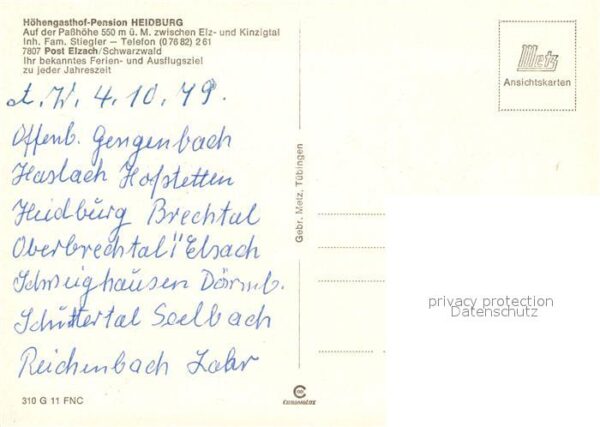 Höhengasthof-Pension HEIDBURG
Auf der Paßhöhe 550 m ü. M. zwischen Elz- und Kinzigtal
Inh. Fam. Stiegler – Telefon (07682) 261
7807 Post Elzach/Schwarzwald
Ihr bekanntes Ferien- und Ausflugsziel
zu jeder Jahreszeit
Metz
Ansichtskarten
4.10.79.
Offenb. Gengenbach
Haslach Hofstetten
Heidburg Brechtal
Oberbrechtal "Elsach
Schweighausen Dörmb.
Schuttertal Seelbach
Reichenbach Lahr
Gebr. Metz, Tübingen
privacy protection
Datenschutz
310 G 11 FNC